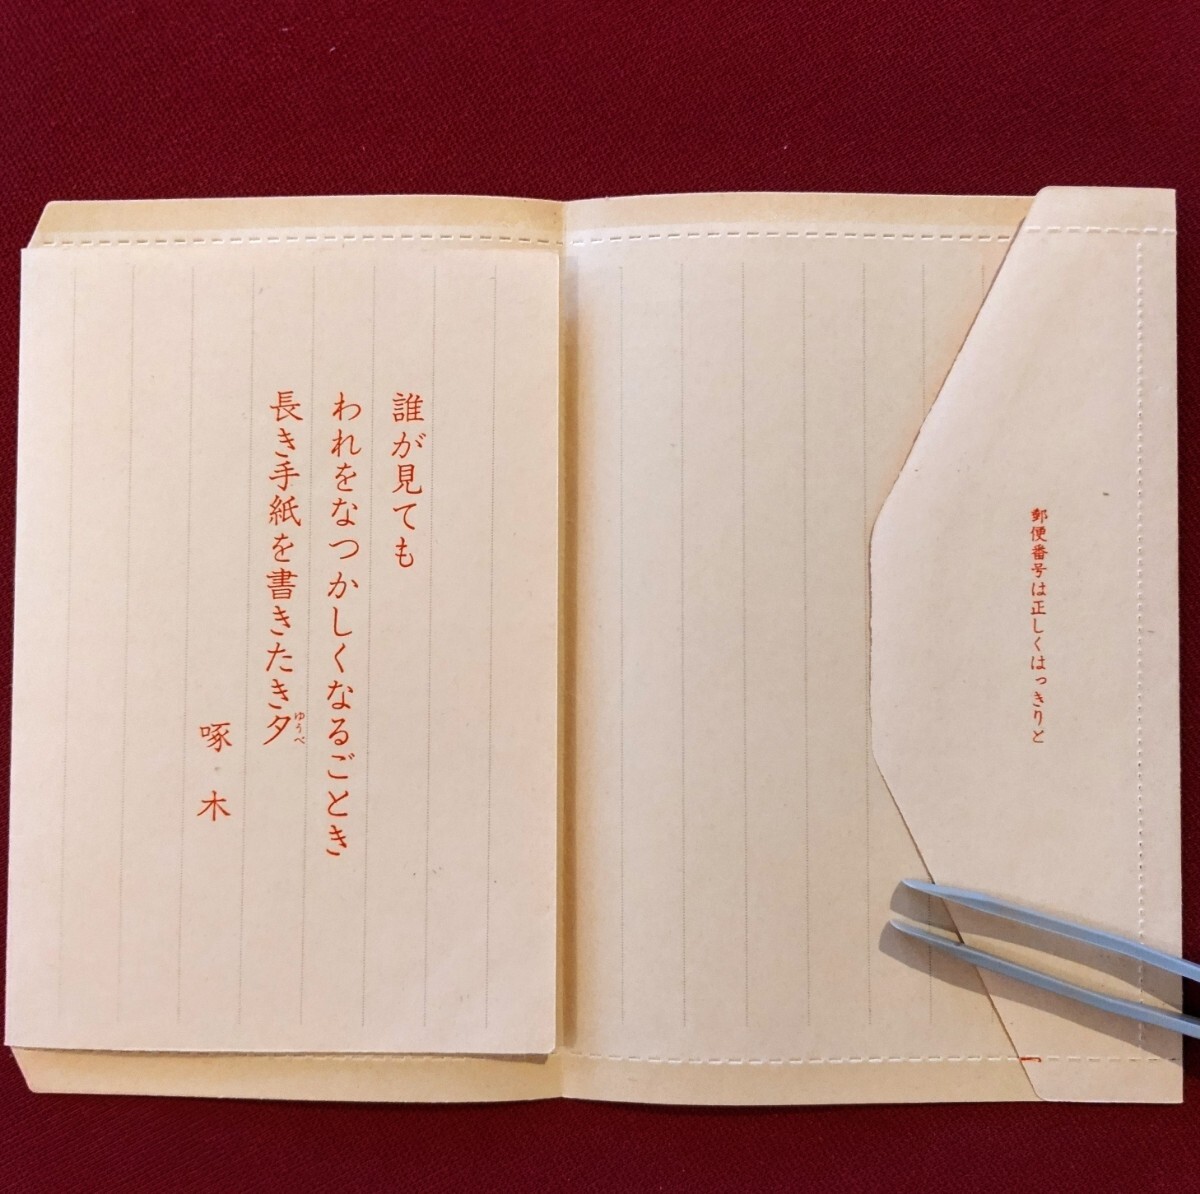 郵便番号は正しくはっきりと
誰が見ても
われをなつかしくなるごとき
長き手紙を書きたき夕
ゆうべ
啄木